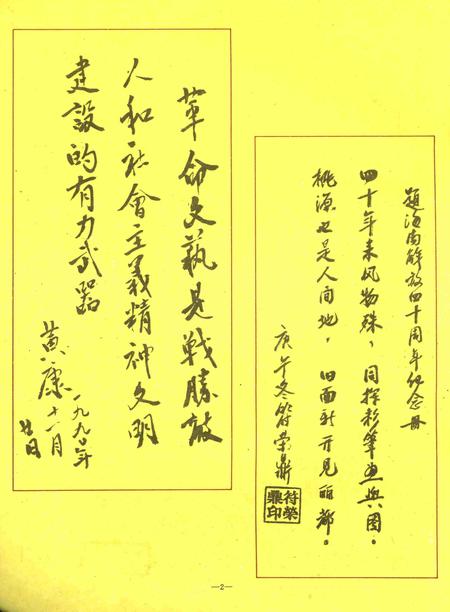 題海南解放四十周年纪念册
四十年来风物殊，同挥彩筆画與图。
桃源也是人间地，旧面新开见丽都。
庚午冬符荣鼎
符榮鼎印
革命文藝是戰勝敵
人和社會主義精神文明
建設的有力武器
黄康
一九九〇年
十一月
廿日
—2—